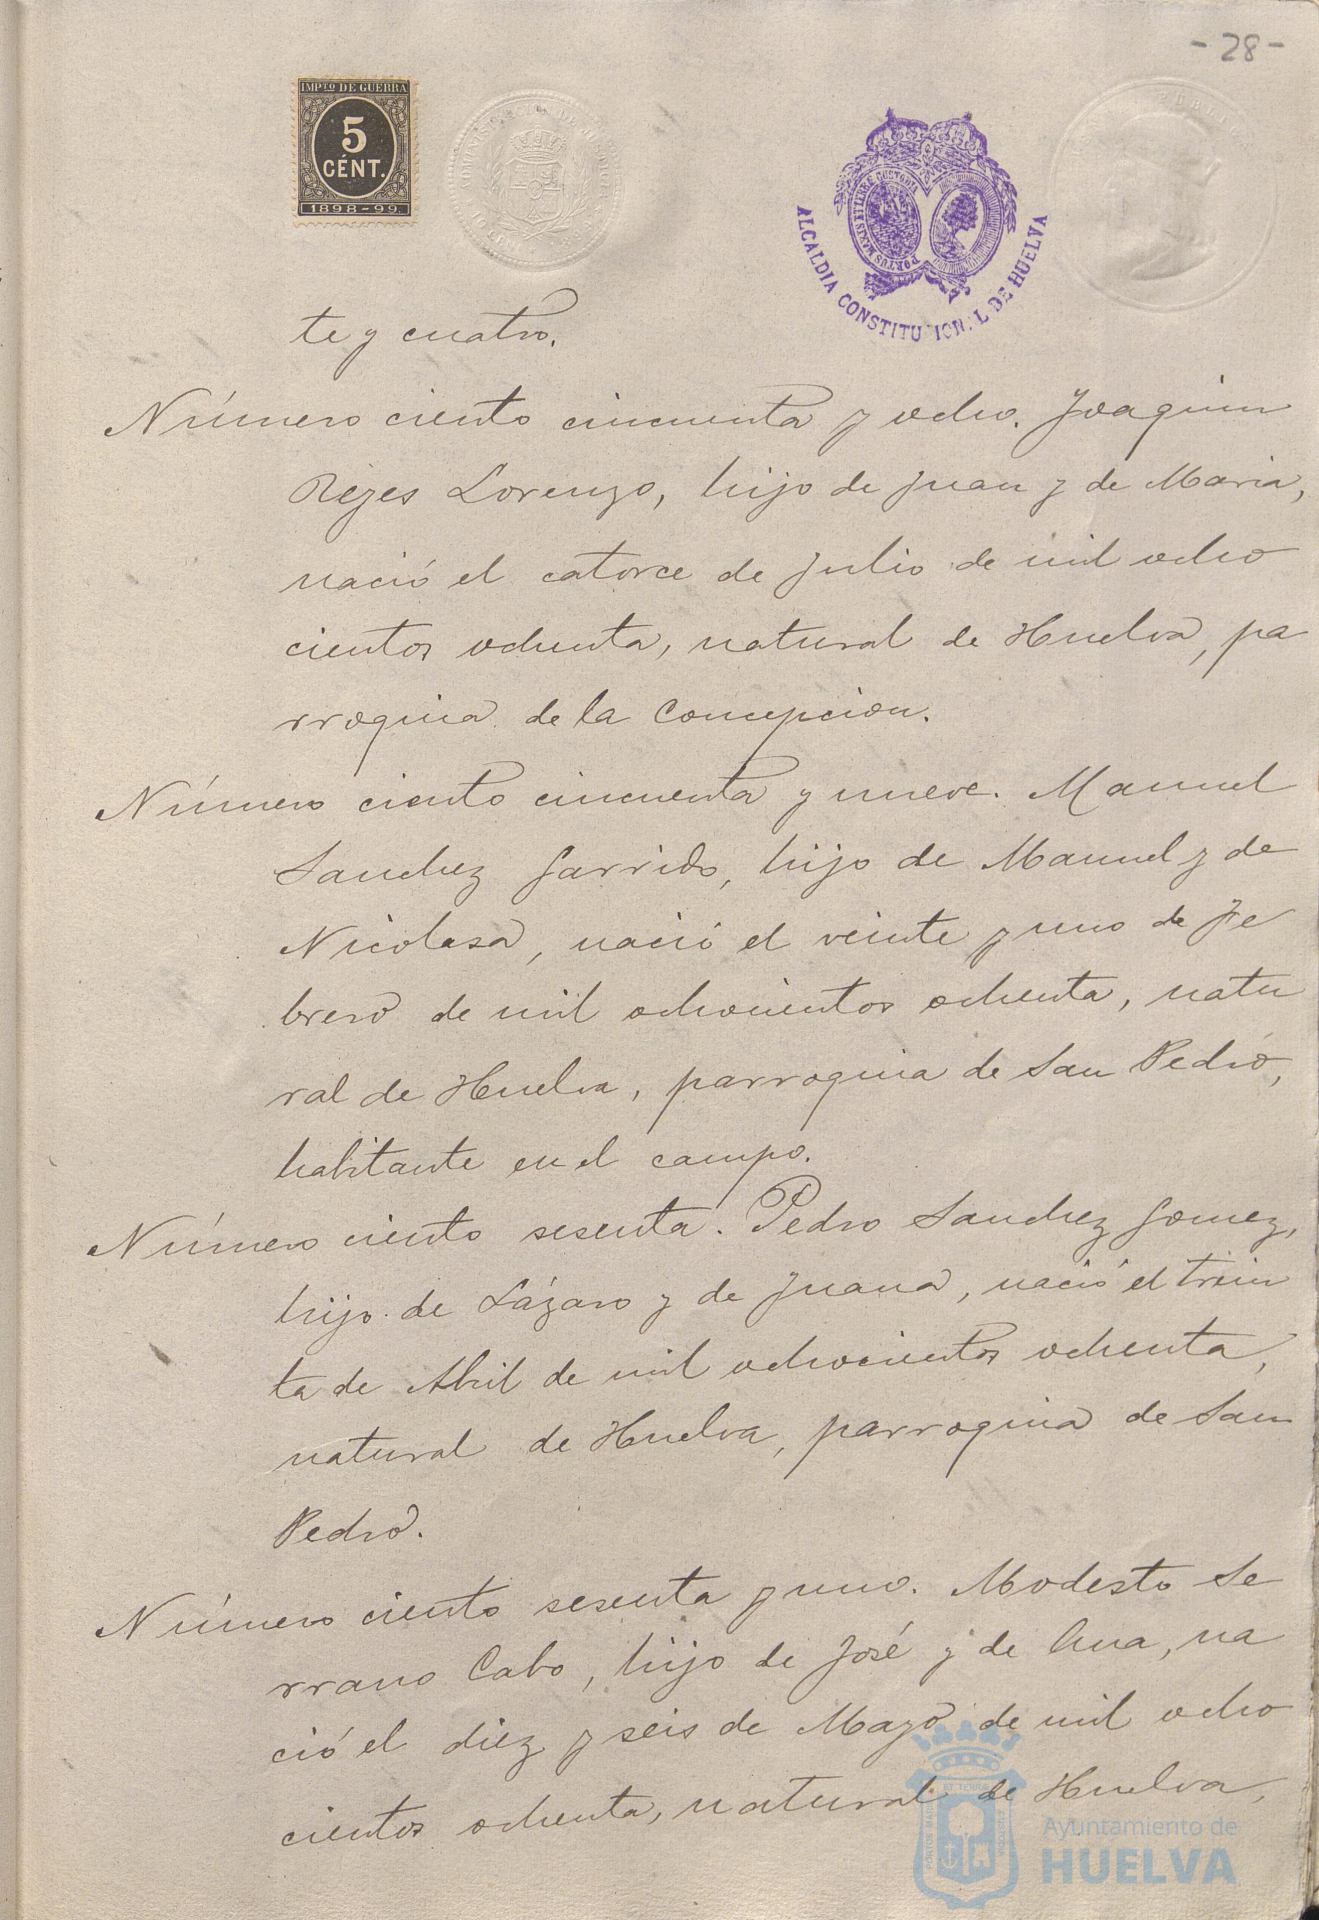 - 28 -
IMPTO DE GUERRA
5
CÉNT.
1898-99.
PORTUS MARIS ET TERRE CUSTODIA
ALCALDIA CONSTITUCIONAL DE HUELVA
te y cuatro.
Número ciento cincuenta y ocho. Joaquin
Reyes Lorenzo, hijo de Juan y de Maria,
nació el catorce de Julio de mil ocho
cientos ochenta, natural de Huelva, pa
rroquia de la Concepcion.
Número ciento cincuenta y nueve. Manuel
Sanchez Garrido, hijo de Manuel y de
Nicolasa, nació el veinte y uno de Fe
brero de mil ochocientos ochenta, natu
ral de Huelva, parroquia de San Pedro,
habitante en el campo.
Número ciento sesenta. Pedro Sanchez Gomez,
hijo de Lázaro y de Juana, nació el trein
ta de Abril de mil ochocientos ochenta,
natural de Huelva, parroquia de San
Pedro.
Número ciento sesenta y uno. Modesto Se
rrano Cabo, hijo de José y de Ana, na
ció el diez y seis de Mayo de mil ocho
cientos ochenta, natural de Huelva,
Ayuntamiento de
HUELVA